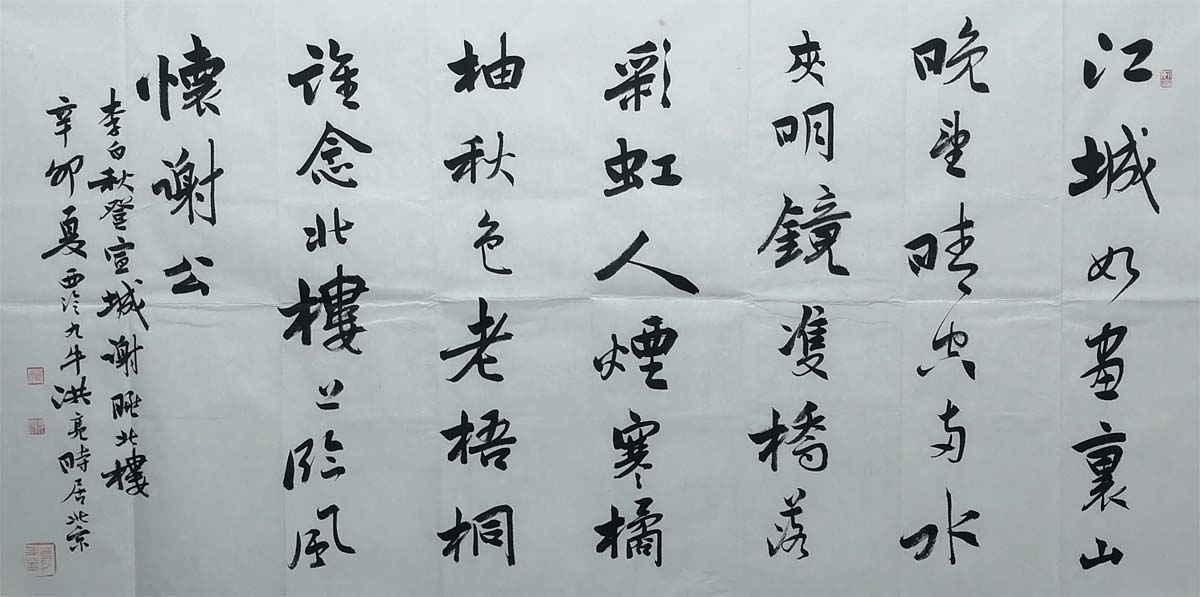 江城如畫裏山
晚望晴空兩水
夾明鏡雙橋落
彩虹人煙寒橘
柚秋色老梧桐
誰念北樓上臨風
懷謝公
李白秋登宣城謝朓北樓
辛卯夏西泠九牛洪亮時居北京